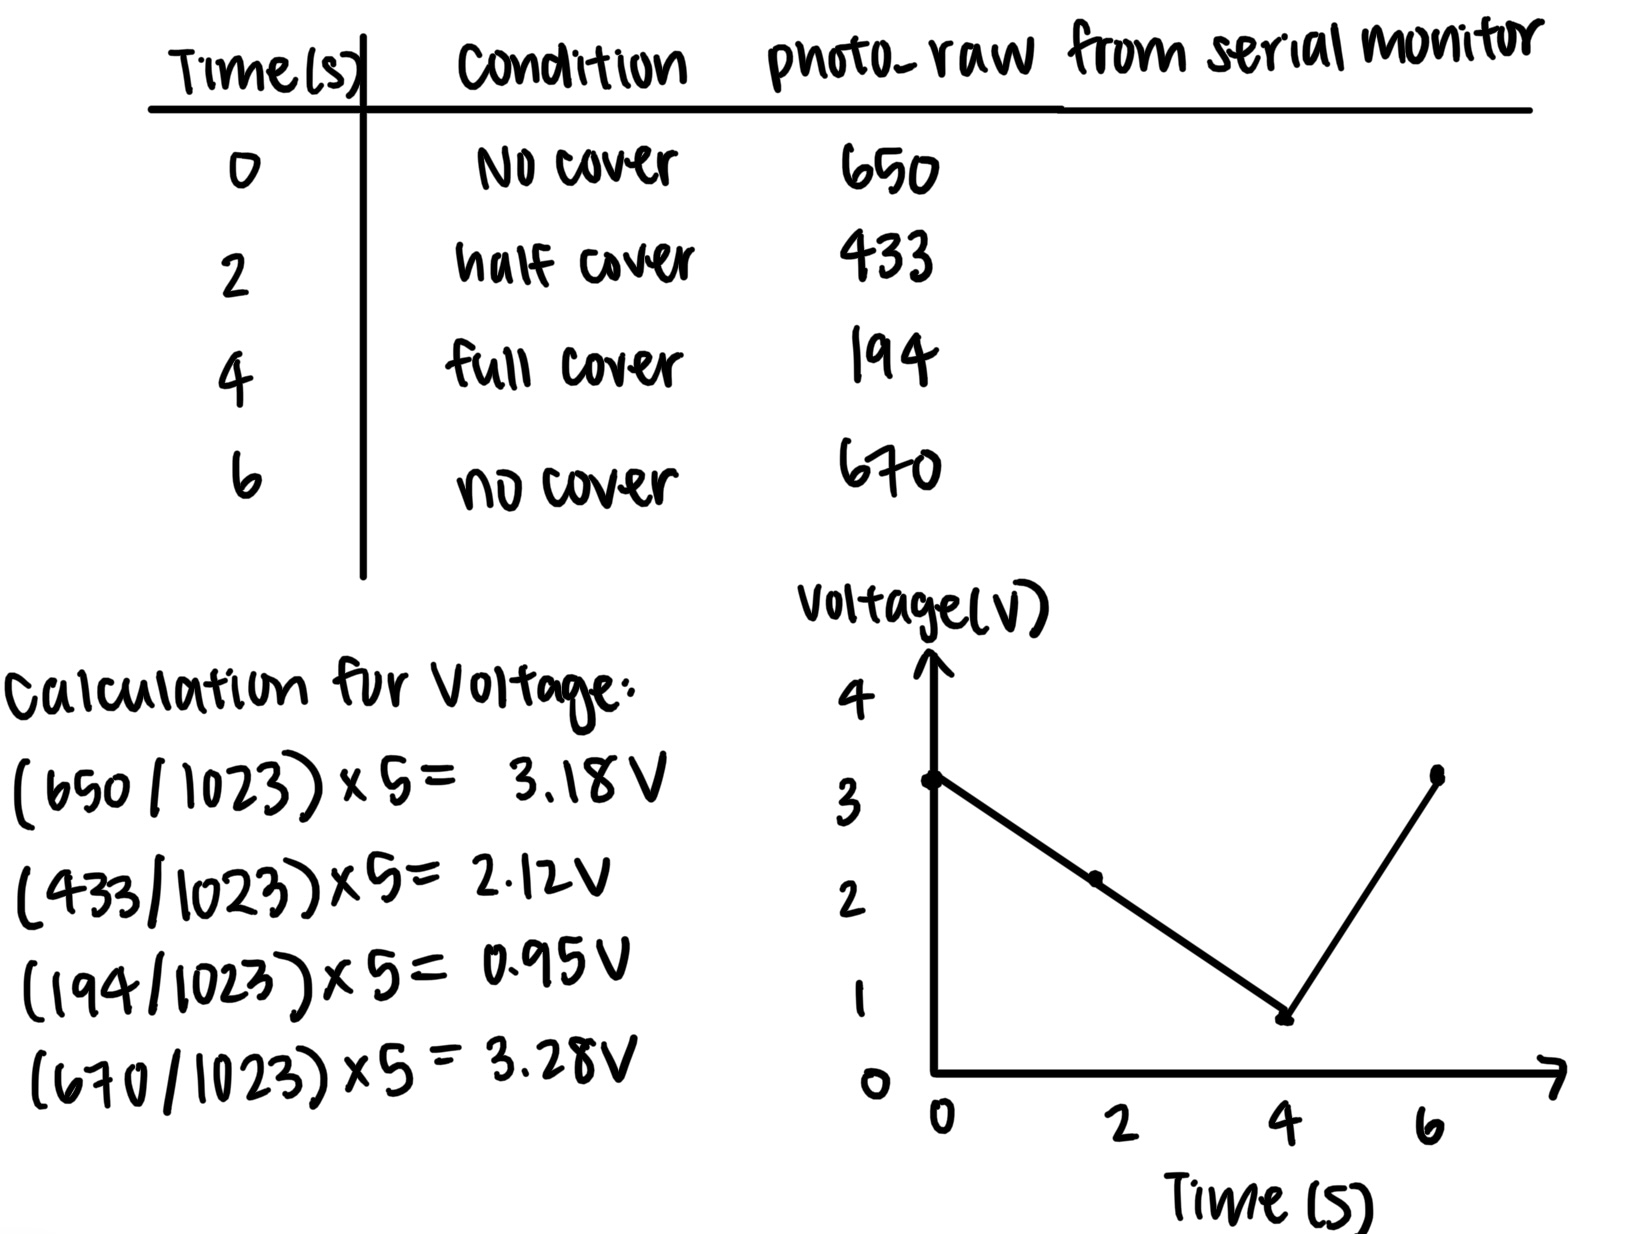 Time(s) Condition photo_raw from serial monitor
0 No cover 650
2 half cover 433
4 full cover 194
6 no cover 670
Calculation for Voltage:
(650/1023)×5= 3.18V
(433/1023)×5= 2.12V
(194/1023)×5= 0.95V
(670/1023)×5= 3.28V
Voltage(V)
4
3
2
1
0
0 2 4 6
Time (s)